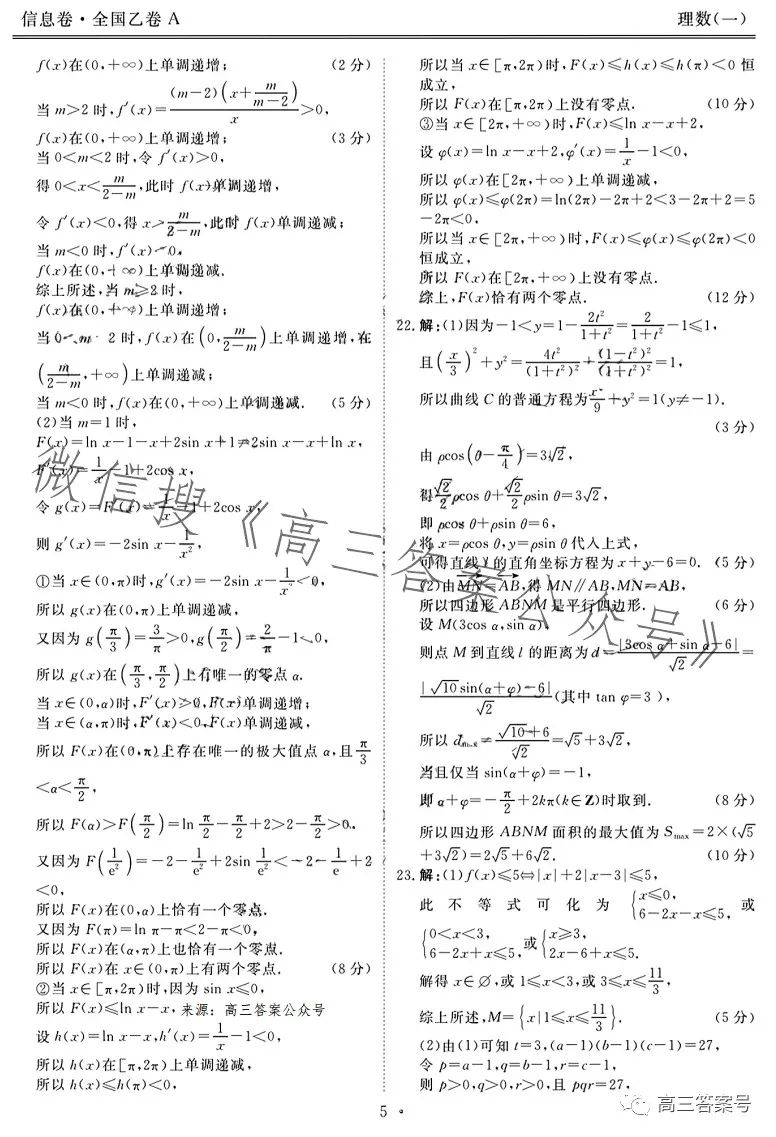 信息卷·全国乙卷 A
理数(一)
f(x)在(0,+∞)上单调递增; (2分)
当m>2时,f′(x)=(m-2)(x+m/(m-2))/x>0,
f(x)在(0,+∞)上单调递增; (3分)
当0<m<2时,令 f′(x)>0,
得0<x<m/(2-m),此时 f(x)单调递增,
令 f′(x)<0,得 x>m/(2-m),此时 f(x)单调递减;
当m<0时,f′(x)<0,
f(x)在(0,+∞)上单调递减.
综上所述,当 m≥2时,
f(x)在(0,+∞)上单调递增;
当0<m<2时,f(x)在(0,m/(2-m))上单调递增,在
(m/(2-m),+∞)上单调递减;
当m<0时,f(x)在(0,+∞)上单调递减. (5分)
(2)当m=1时,
F(x)=ln x-1-x+2sin x+1=2sin x-x+ln x,
F′(x)=1/x-1+2cos x,
令 g(x)=F′(x)=1/x-1+2cos x,
则 g′(x)=-2sin x-1/x²,
①当x∈(0,π)时,g′(x)=-2sin x-1/x²<0,
所以 g(x)在(0,π)上单调递减,
又因为 g(π/3)=3/π>0,g(π/2)=2/π-1<0,
所以 g(x)在(π/3,π/2)上有唯一的零点 α.
当x∈(0,α)时,F′(x)>0,F(x)单调递增;
当x∈(α,π)时,F′(x)<0,F(x)单调递减,
所以 F(x)在(0,π)上存在唯一的极大值点 α,且π/3
<α<π/2,
所以 F(α)>F(π/2)=ln π/2-π/2+2>2-π/2>0.
又因为 F(1/e²)=-2-1/e²+2sin 1/e²<-2-1/e+2
<0,
所以 F(x)在(0,α)上恰有一个零点.
又因为 F(π)=ln π-π<2-π<0,
所以 F(x)在(α,π)上也恰有一个零点.
所以 F(x)在 x∈(0,π)上有两个零点. (8分)
②当 x∈[π,2π)时,因为 sin x≤0,
所以 F(x)≤ln x-x, 来源: 高三答案公众号
设 h(x)=ln x-x,h′(x)=1/x-1<0,
所以 h(x)在[π,2π)上单调递减,
所以 h(x)≤h(π)<0,
所以当 x∈[π,2π)时,F(x)≤h(x)≤h(π)<0 恒
成立,
所以 F(x)在[π,2π)上没有零点. (10分)
③当 x∈[2π,+∞)时,F(x)≤ln x-x+2,
设 φ(x)=ln x-x+2,φ′(x)=1/x-1<0,
所以 φ(x)在[2π,+∞)上单调递减,
所以 φ(x)≤φ(2π)=ln(2π)-2π+2<3-2π+2=5
-2π<0,
所以当 x∈[2π,+∞)时,F(x)≤φ(x)≤φ(2π)<0
恒成立,
所以 F(x)在[2π,+∞)上没有零点.
综上,F(x)恰有两个零点. (12分)
22.解:(1)因为-1<y=1-2t²/(1+t²)=2/(1+t²)-1≤1,
且(x/3)²+y²=4t²/(1+t²)²+(1-t²)²/(1+t²)²=1,
所以曲线 C 的普通方程为x²/9+y²=1(y≠-1).
(3分)
由 ρcos(θ-π/4)=3√2,
得√2/2ρcos θ+√2/2ρsin θ=3√2,
即 ρcos θ+ρsin θ=6,
将 x=ρcos θ,y=ρsin θ代入上式,
可得直线 l 的直角坐标方程为 x+y-6=0. (5分)
(2)由MN=AB,得 MN∥AB,MN=AB,
所以四边形 ABNM 是平行四边形. (6分)
设 M(3cos α,sin α),
则点 M 到直线 l 的距离为 d=|3cos α+sin α-6|/√2=
|√10sin(α+φ)-6|/√2(其中 tan φ=3 ),
所以 dmax=(√10+6)/√2=√5+3√2,
当且仅当 sin(α+φ)=-1,
即 α+φ=-π/2+2kπ(k∈Z)时取到. (8分)
所以四边形 ABNM 面积的最大值为 Smax=2×(√5
+3√2)=2√5+6√2. (10分)
23.解:(1)f(x)≤5⇔|x|+2|x-3|≤5,
此不等式可化为{x≤0, 6-2x-x≤5, 或
{0<x<3, 6-2x+x≤5, 或{x≥3, 2x-6+x≤5.
解得 x∈∅,或 1≤x<3,或 3≤x≤11/3,
综上所述,M={x|1≤x≤11/3}. (5分)
(2)由(1)可知 t=3,(a-1)(b-1)(c-1)=27,
令 p=a-1,q=b-1,r=c-1,
则 p>0,q>0,r>0,且 pqr=27,
微信搜《高三答案公众号》
5
高三答案号